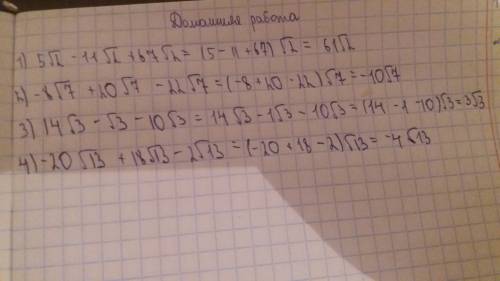 Домашняя работа
1) 5√2 - 11√2 + 67√2 = (5 - 11 + 67)√2 = 61√2
2) -8√7 + 20√7 - 22√7 = (-8 + 20 - 22)√7 = -10√7
3) 14√3 - √3 - 10√3 = 14√3 - 1√3 - 10√3 = (14 - 1 - 10)√3 = 3√3
4) -20√13 + 18√13 - 2√13 = (-20 + 18 - 2)√13 = -4√13